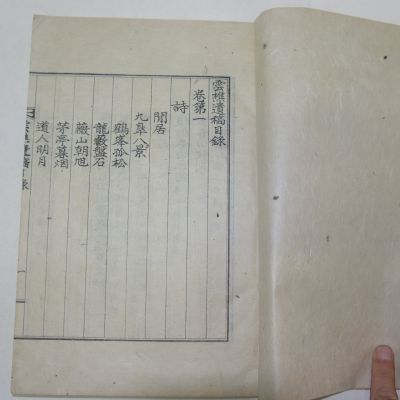 雲樵遺稿目錄
卷第一
詩
閒居
九皐八景
鶴峯孤松
龍藪盤石
巖山朝旭
茅亭暮烟
道人明月